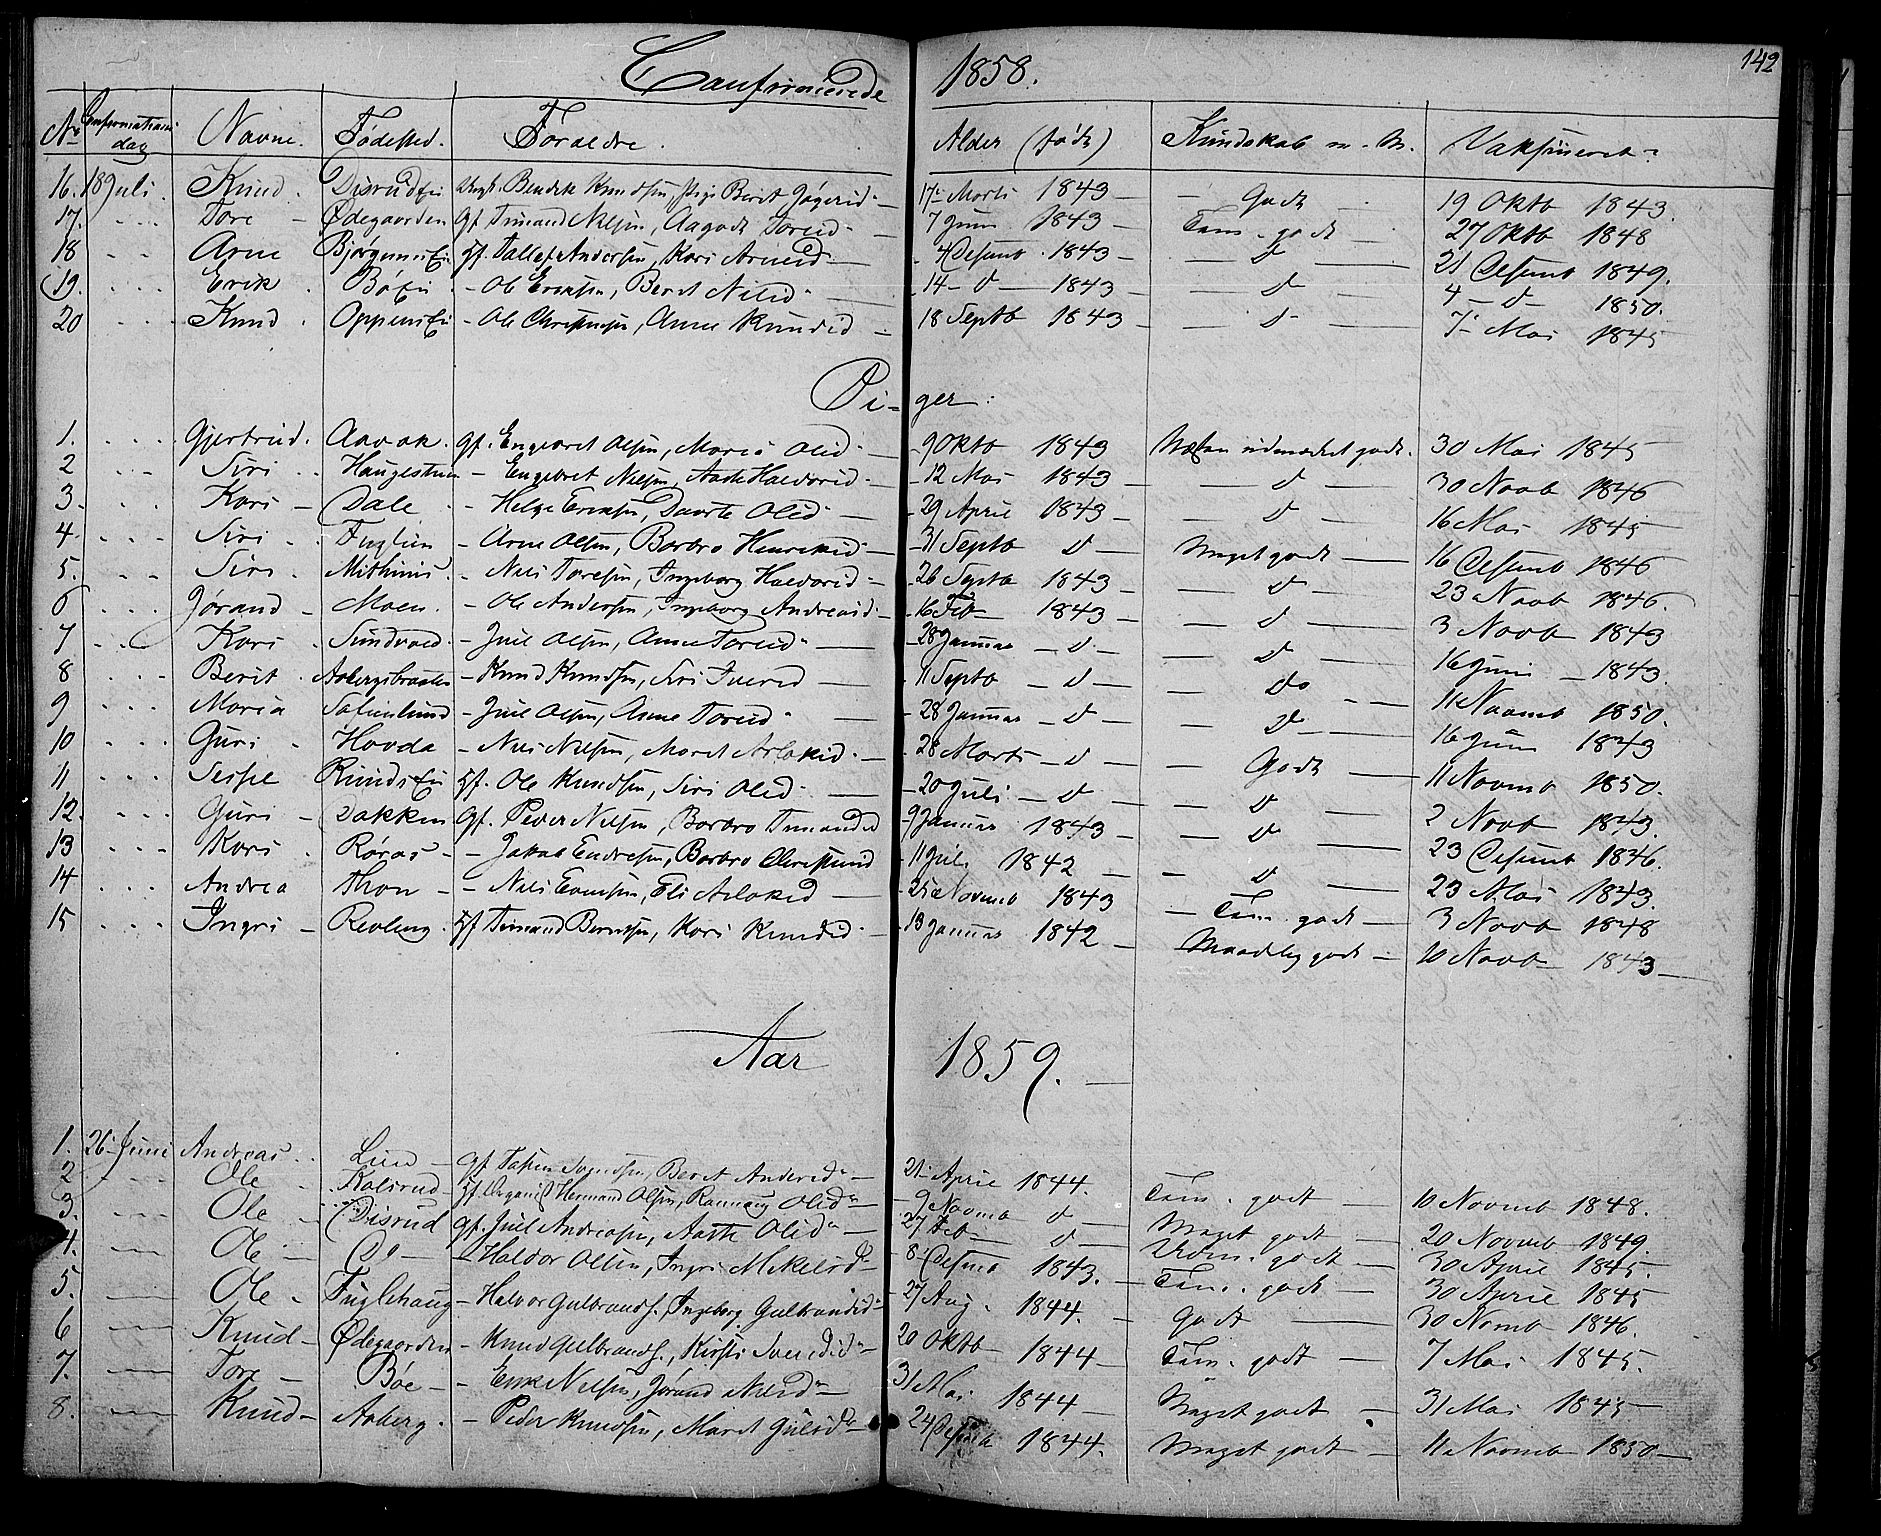 142
Confirmerede 1858.
No Confirmations dag Navne. Fødested. Foraeldre. Alder (født) Kundskab m. M. Vaksineret
16. 18 Juli. Knud. DisrudEie Ungk. Bendik Knudsen, Pige Berit 17 Marts 1843 — Godt — 19 Oktb 1843.
17. - - - Tore - Ødegaarden Gf. Timand Nilsen, Aagodt Toresd. — 7 Juni 1843 — Tem. godt — 27 Oktb 1848
18 - - Arne BjørgumsEi Hf. Tollef Andersen, Kari Arnesd — 4 Desemb. 1843 — d — 21 Desemb 1849.
19. - - - Erik. BøEie - Ole Eriksen, Beret Nilsd — 14 - d — 1843 — d — 4 - d — 1850.
20 - - - Knud. OppensEi - Ole Christensen, Anne Knudsd — 18 Septb 1843 — d — 7 Mai 1845
Pi- ger:
1. - - - Gjertrud. Aavak. Gf. Engebret Olsen, Maria Olsd — 9 Oktb 1843 Næsten udmærket godt. 30 Mai 1845
2 - - - Siri - - Haugestuen - Engebret Nilsen, Aaste Haldorsd — 12 Mai 1843 — d — 30 Novb 1846
3. - - - Kari - Dale - Helge Eriksen, Dorte Olsd — 29 April 1843 — d — 16 Mai 1845
4. - - - Siri - Fuglien - Arne Olsen, Barbro Henriksd — 31 Septb d — Meget godt — 16 Desemb 1846
5. - - - Siri. Mithuus. - Nils Toresen, Ingeborg Haldorsd — 26 Septb 1843 — d — 23 Novb 1846.
6 - - - Jørand - Moen. - Ole Andersen, Ingeborg Andreasd. 16 Feb 1843 — d — 3 Novb 1843
7 - - Kari - Sundvold. - Juel Olsen, Anne Toresd — 28 Januar — d — d — 16 Juni — 1843.
8 - - - Berit. Aabergsbraaten - Knud Knudsen, Siri Iversd — 11 Septb — d — do — 11 Novemb 1850.
9 - - - Maria - Juel Olsen, Anne Toresd. — 28 Januar — d — d — 16 Juni 1843
10 - - - Guri - Hovda - Nils Nilsen, Marit Aslaksd — 28 Marts — d — Godt — 11 Novemb 1850.
11 - - - Sessel RundsEi Hf. Ole Knudsen, Siri Olsd — 20 Juli — d — d — 2 Novb 1843.
12. - - - Guri - Dokken Gf. Peder Nilsen, Barbro Timandsd 9 Januar 1843 — d — 23 Desemb 1846.
13 - - - Kari. Røraas - - Jakob Endresen, Barbro 11 Juli 1842 — d — 23 Mai 1843.
14 - - - Andrea Thon - - Nils Evensen, Eli Aslaksd — 25 Novemb 1843 — Tem. godt — 3 Novb 1848
15 - - - Ingri - Revling. Hf Timand Berntsen, Kari Knudsd. — 18 Januar 1842 — Maadelig godt — 10 Novb 1843 —
Aar 1859. —
1. 26 Juni Andreas. - Lien — Gf. Beret Andersd — 21 April 1844. Tem. godt — 10 Novemb 1848.
2 - - - Ole - Kolsrud - Hf. Organist Hermand Olsen, Rannaug Olsd — 9 Novemb d — Meget godt — 20 Novemb 1849.
3. - - Ole - Disrud Gf. Juel Andreasen, Aaste Olsd — 27 Feb — d — Udm. godt — 30 April 1845.
4. — Ole — Do — - Haldor Olsen, Ingri Mikelsd — 8 Desemb 1843. — Tem. godt — 30 April 1845
5. — Ole - Fuglehaug - Halvor Gulbrands., Ingeborg Gulbrandsd — 27 Aug. 1844. — Godt — 30 Novmb 1846.
6 — Knud - Ødegaarden - Knud Gulbrands., Kirsti Svendsd — 20 Oktb 1844 — Tem. godt — 7 Mai 1845.
7. — Tore — Bøe - - Erik Nilsen, Jørand Nilsd — 31 Mai 1844 — Meget godt — 31 Mai 1845
8. — Knud - Aaberg. - Peder Knudsen, Marit — 24 Desemb 1844. Meget godt — 11 Novemb 1850 —